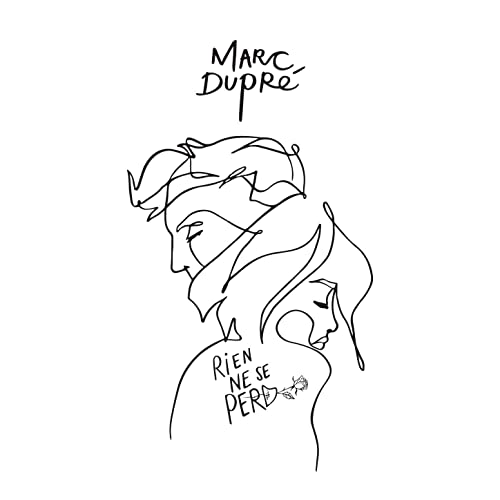 MARC
DUPRÉ
RiEN
NE SE
PERD